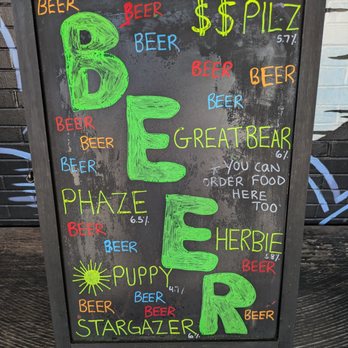 BEER
BEER
BEER
$$ PILZ
5.7%
BEER
BEER
BEER
BEER
BEER
BEER
BEER
GREAT BEAR
6%
BEER
YOU CAN
ORDER FOOD
HERE
TOO
PHAZE
6.5%
BEER
BEER
HERBIE
5.8%
BEER
PUPPY
4.7%
BEER
BEER
BEER
BEER
STARGAZER
6%